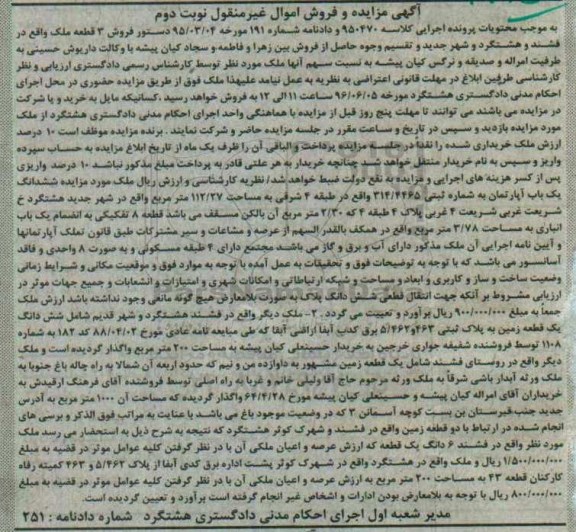 آگهی مزایده و فروش اموال غیرمنقول نوبت دوم
به موجب محتویات پرونده اجرایی کلاسه ۹۵۰۴۷۰ و دادنامه شماره ۱۹۱ مورخه ۹۵/۰۳/۰۴ دستور فروش ۳ قطعه ملک واقع در
فشند و هشتگرد و شهر جدید و تقسیم وجوه حاصل از فروش بین زهرا و فاطمه و سجاد کیان پیشه با وکالت داریوش حسینی به
طرفیت امراله و صدیقه و نرگس کیان پیشه به نسبت سهم آنها ملک مورد نظر توسط کارشناس رسمی دادگستری ارزیابی و نظر
کارشناسی طرفین ابلاغ در مهلت قانونی اعتراضی به نظریه به عمل نیامد علیهذا ملک فوق از طریق مزایده حضوری در محل اجرای
احکام مدنی دادگستری هشتگرد مورخه ۹۶/۰۶/۰۵ ساعت ۱۱ الی ۱۲ به فروش خواهد رسید. کسانیکه مایل به خرید و یا شرکت
در مزایده می باشند می توانند تا مهلت پنج روز قبل از مزایده با هماهنگی واحد اجرای احکام مدنی دادگستری هشتگرد از ملک
مورد مزایده بازدید و سپس در تاریخ و ساعت مقرر در جلسه مزایده حاضر و شرکت نمایند. برنده مزایده موظف است ۱۰ درصد
ارزش ملک خریداری شده را نقدا در جلسه مزایده پرداخت و الباقی آن را ظرف یک ماه از تاریخ ابلاغ مزایده به حساب سپرده
واریز و سپس به نام خریدار منتقل خواهد شد چنانچه خریدار به هر علتی قادر به پرداخت مبلغ مذکور نباشد ۱۰ درصد واریزی
پس از کسر هزینه های اجرایی و مزایده به نفع دولت ضبط خواهد شد/ نظریه کارشناسی و ارزش ریال ملک مورد مزایده ششدانگ
یک باب آپارتمان به شماره ثبتی ۳۱۴/۴۴۶۵ واقع در طبقه ۴ شرقی به مساحت ۱۱۲/۲۷ متر مربع واقع در شهر جدید هشتگرد خ
شریعت غربی شریعت ۴ غربی پلاک ۴ طبقه ۴ که ۲/۳۰ متر مربع آن بالکن مسقف می باشد قطعه ۸ تفکیکی به انضمام یک باب
انباری به مساحت ۳/۷۸ متر مربع واقع در همکف بالقدر السهم از عرصه و مشاعات و سیر مشترکات طبق قانون تملک آپارتمانها
و آیین نامه اجرایی آن ملک مذکور دارای آب و برق و گاز می باشد مجتمع دارای ۴ طبقه مسکونی و به صورت ۸ واحدی و فاقد
آسانسور می باشد که با توجه به توضیحات فوق و تحقیقات به عمل آمده با توجه به موارد فوق و موقعیت مکانی و شرایط زمانی
وضعیت ساخت و ساز و کاربری و ابعاد و مساحت و شبکه ارتباطاتی و امکانات شهری و امتیازات و انشعابات و جمیع جهات موثر در
ارزیابی مشروط بر آنکه جهت انتقال قطعی شش دانگ پلاک به صورت بلامعارض هیچ گونه مانعی وجود نداشته باشد ارزش ملک
جمعاً به مبلغ ۹۰۰/۰۰۰/۰۰۰ ریال برآورد و تعیین می گردد. ۲- ملک دیگر واقع در فشند هشتگرد و شهر قدیم شامل شش دانگ
یک قطعه زمین به پلاک ثبتی ۴۶۳ و ۵/۴۶۲ برق کدب آبفا اراضی آبفا که طی مبایعه نامه عادی مورخ ۸۸/۰۴/۰۲ کد ۱۸۲ به شماره
۱۱۰۸ توسط فروشنده شفیقه جواری خرجین به خریدار حسینعلی کیان پیشه به مساحت ۲۰۰ متر مربع واگذار گردیده است و ملک
دیگر واقع در روستای فشند شامل یک قطعه زمین مشهور به داوازده من و نیم که حدود اربعه آن شمالا به راه چاله باغ جنوبا به
ملک ورثه آبدار باشی شرقاً به ملک ورثه مرحوم حاج آقا ولیلی خانم و غربا به راه اصلی توسط فروشنده آقای فرهنگ ارقیدش به
خریداران آقای امراله کیان پیشه و حسینعلی کیان پیشه مورخ ۶۴/۴/۲۸ واگذار گردیده که مساحت آن ۱۰۰۰ متر مربع به آدرس
جدید جنب قبرستان بن بست کوچه آسمانی ۳ که در وضعیت موجود باغ می باشد با عنایت به مراتب فوق الذکر و برسی های
انجام شده در ارتباط با دو قطعه زمین واقع در فشند و شهرک کوثر هشتگرد که نتیجه به شرح ذیل به استحضار می رسد ملک
مورد نظر واقع در فشند ۶ دانگ یک قطعه که ارزش عرصه و اعیان ملکی آن با در نظر گرفتن کلیه عوامل موثر در قضیه به مبلغ
۱/۵۰۰/۰۰۰/۰۰۰ ریال و ملک واقع در هشتگرد واقع در شهرک کوثر پشت اداره برق کدی آبفا از پلاک ۵/۴۶۲ و ۴۶۳ کمیته رفاه
کارکنان قطعه ۴۳ به مساحت ۲۰۰ متر مربع به ارزش عرصه و اعیان ملکی آن با در نظر گرفتن کلیه عوامل موثر در قضیه به مبلغ
۸۰۰/۰۰۰/۰۰۰ ریال با توجه به بلامعارض بودن ادارات و اشخاص غیر انجام گرفته است برآورد و تعیین گردیده است.
مدیر شعبه اول اجرای احکام مدنی دادگستری هشتگرد شماره دادنامه : ۲۵۱